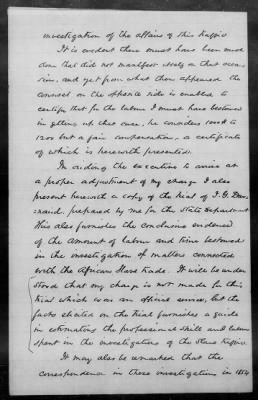 investigation of the affairs of this traffic
It is evident there must have been much
done that did not manifest itself on that occa-
sion, and yet from what then appeared the
counsel on the opposite side is enabled to
certify that for the labour I must have bestowed
in getting up this case, he considers 1000 to
1200 but a fair compensation, a certificate
of which is herewith presented.
In aiding the executive to arrive at
a proper adjustment of my charge I also
present herewith a copy of the trial of J. G.
prepared by me for the State Department
This also furnishes the conclusive evidence
of the amount of labour and time bestowed
in the investigation of matters connected
with the African Slave trade. It will be under
stood that my charge is not made for this
trial which was an official service, but the
facts elicited on the trial furnishes a guide
in estimating the professional skill and labour
spent in the investigations of the Slave traffic.
It may also be remarked that the
correspondence in these investigations in